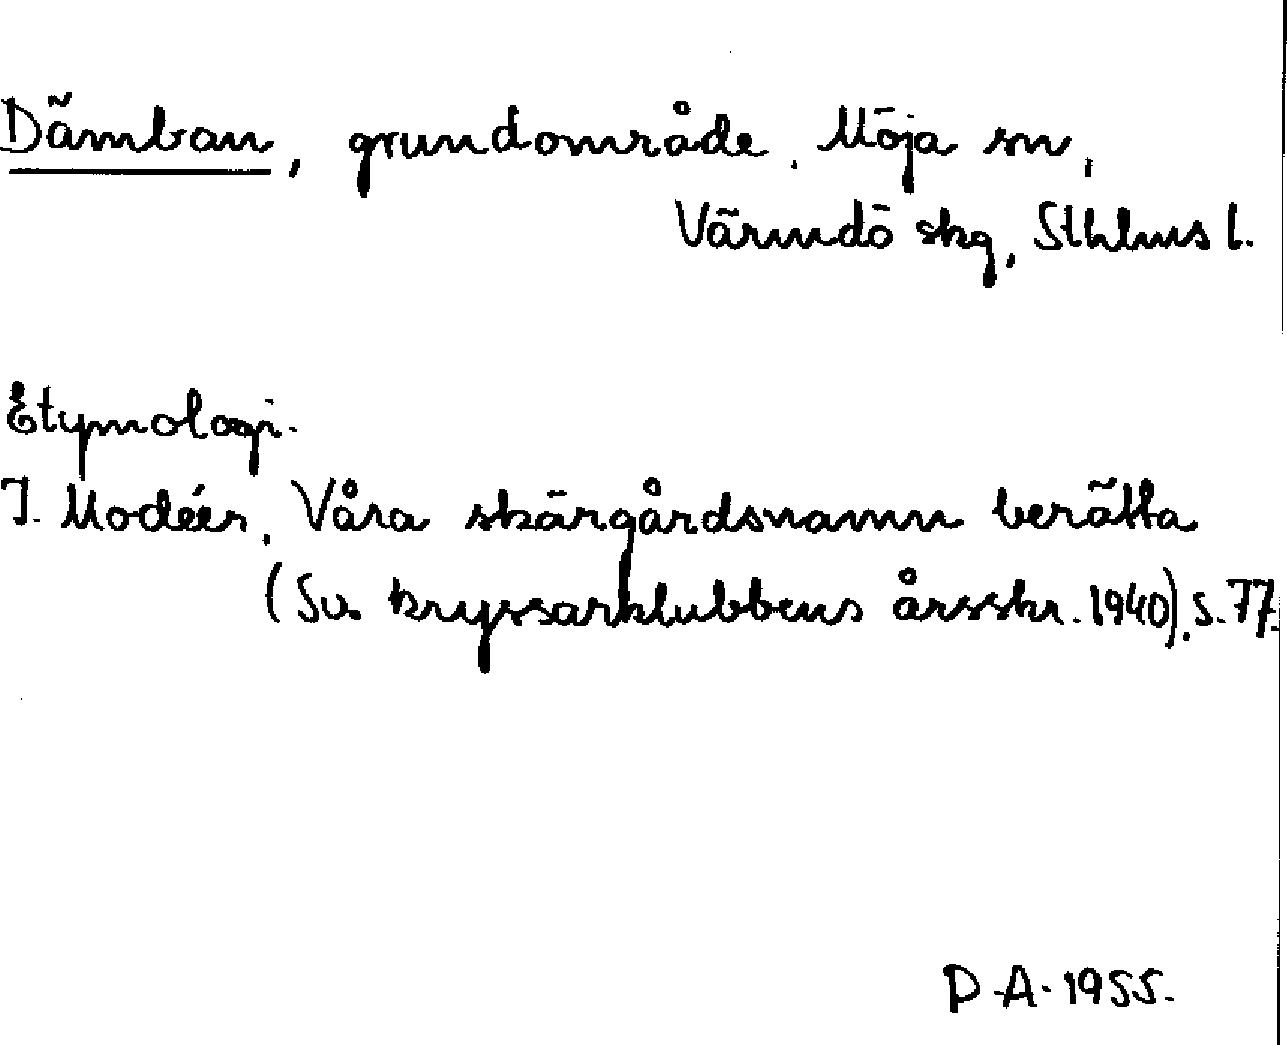 Dämban, grundområde. Möja sn,
Värmdö skg, Sthlms l.
Etymologi.
I. Modéer, Våra skärgårdsnamn berätta
(Sv. kryssarklubbens årsskr. 1940), s. 77.
D.A. 1955.